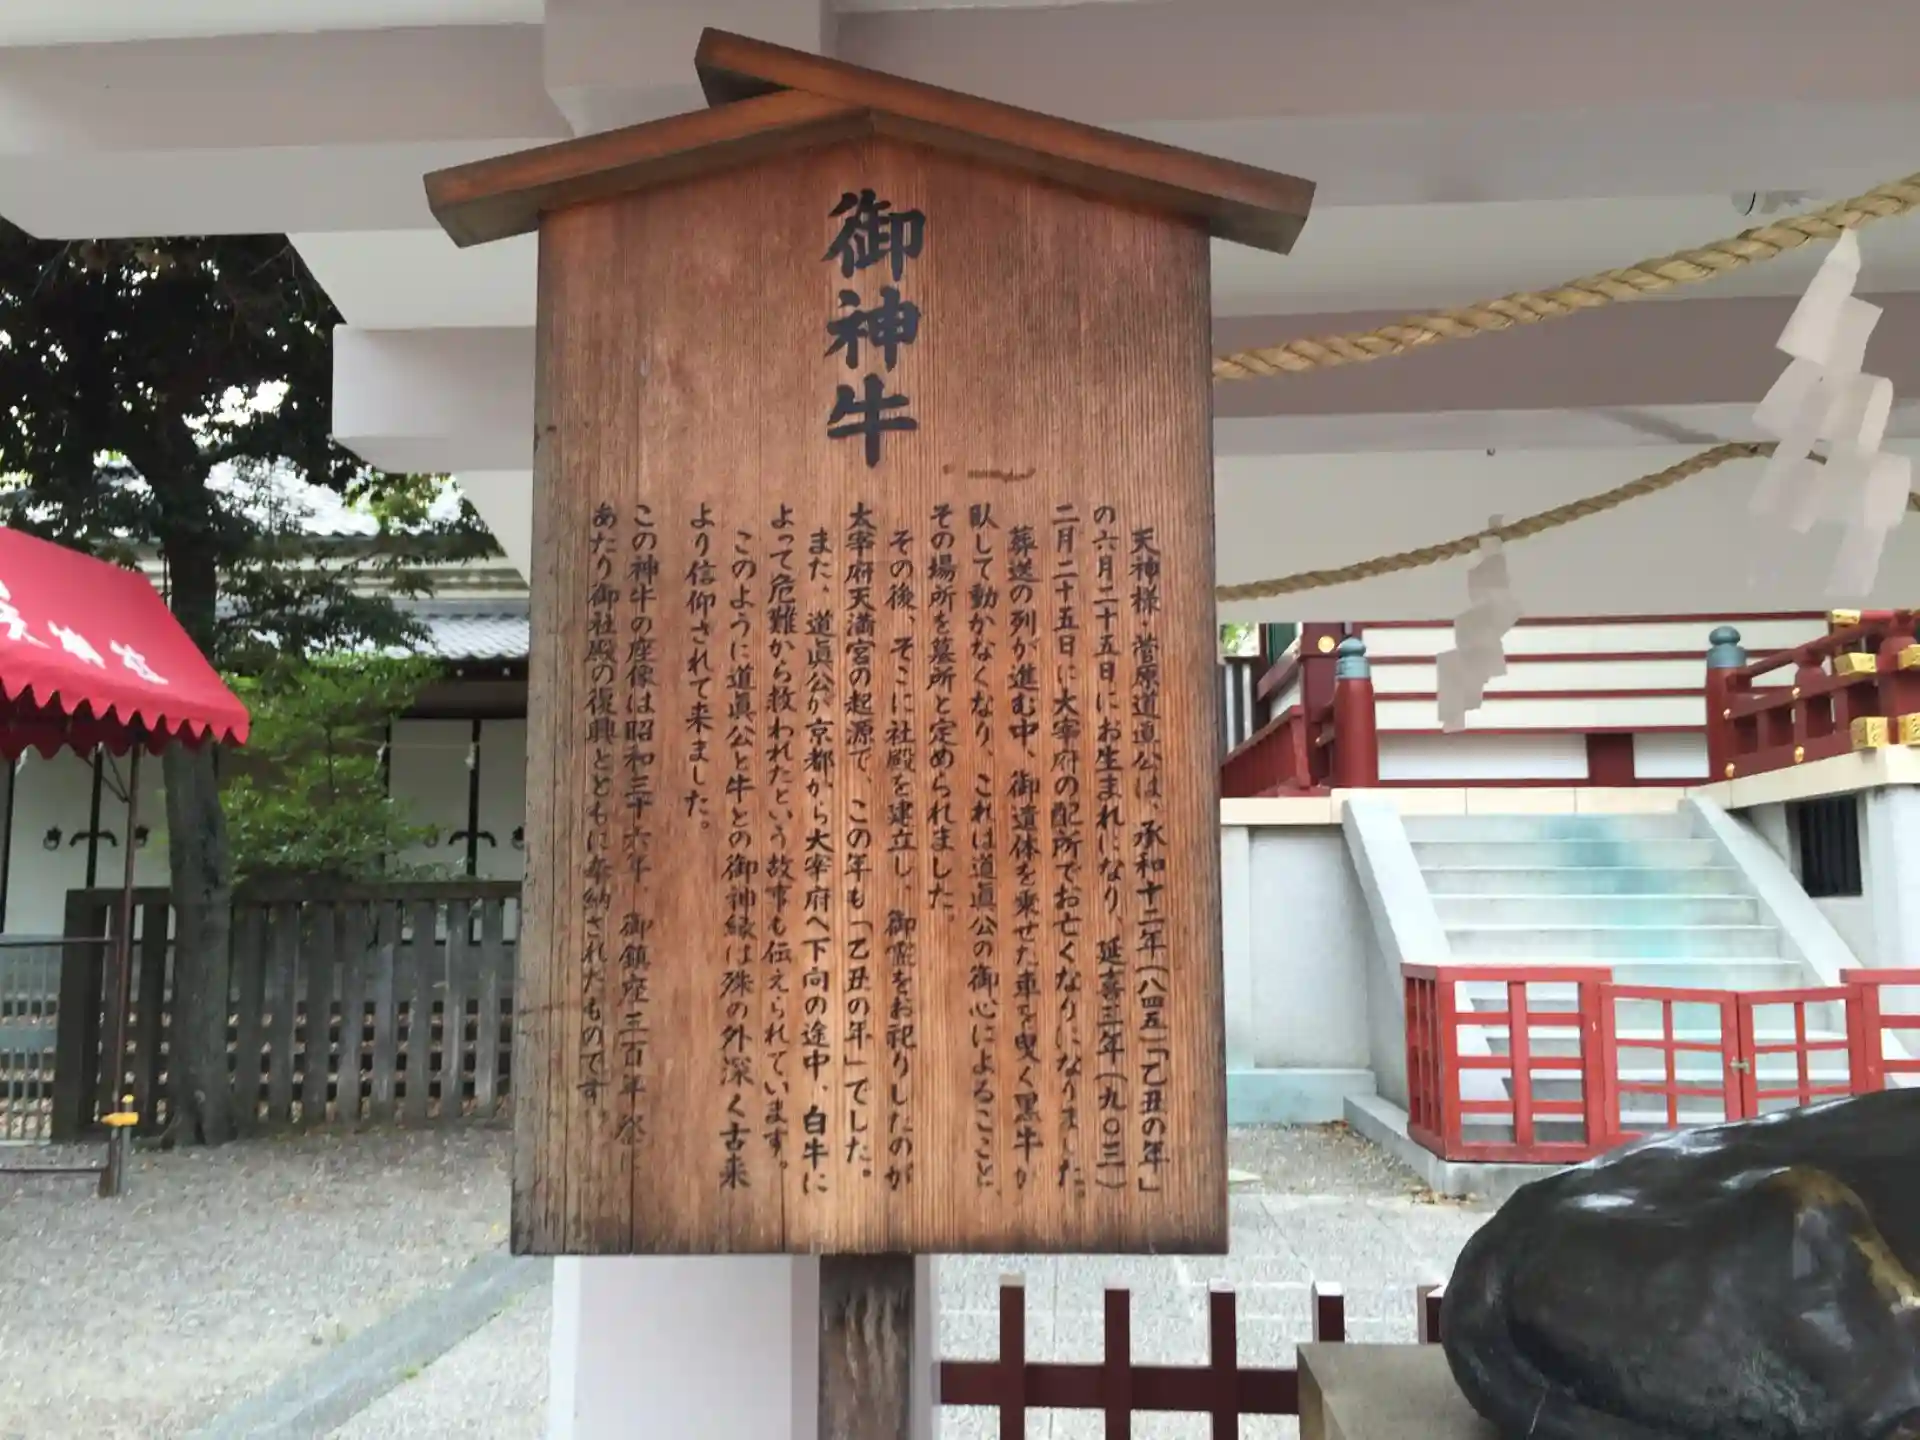 御神牛
天神様・菅原道眞公は、承和十二年(八四五)「乙丑の年」
の六月二十五日にお生まれになり、延喜三年(九〇三)
二月二十五日に大宰府の配所でお亡くなりになりました。
葬送の列が進む中、御遺体を乗せた車を曳く黒牛が
臥して動かなくなり、これは道眞公の御心によることと、
その場所を墓所と定められました。
その後、そこに社殿を建立し、御霊をお祀りしたのが
太宰府天満宮の起源で、この年も「乙丑の年」でした。
また、道眞公が京都から大宰府へ下向の途中、白牛に
よって危難から救われたという故事も伝えられています。
このように道眞公と牛との御神縁は殊の外深く古来
より信仰されて来ました。
この神牛の座像は昭和三十六年、御鎮座三百年祭に
あたり御社殿の復興とともに奉納されたものです。